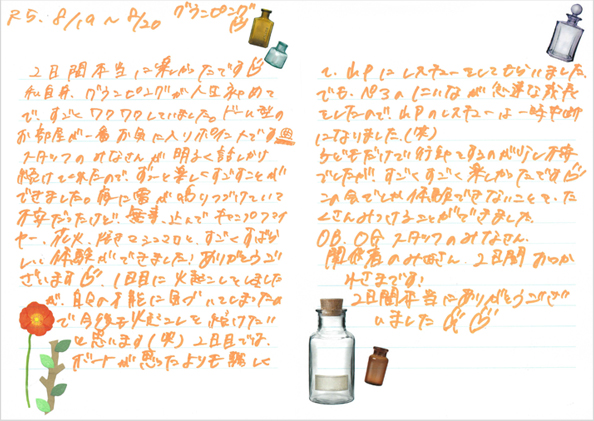 R5. 8/19 〜 8/20 グランピング
2日間本当に楽しかったです
私自身、グランピングが人生初めて
で、すごくワクワクしていました。ドーム型の
お部屋が一番お気に入りポイントです
スタッフのみなさんが明るく話しかけ
続けてくれたので、ずーと楽しくすごすことが
できました。毎に雷が鳴りつづけていて
不安だったけど、無事、止んでキャンプファイ
ヤー、花火、焼きマシュマロと、すごくすばら
しい体験ができました!ありがとうござ
ざいます 1日目に火起こしをしました
が、自分の才能に気づいてしまったの
で今後も火起こしを続けたい
と思います(笑) 2日目では、
ボートが思ったよりも難しく
て、山Pにレスキューをしてもらいました。
でも、No3の にいなが急速な成長
をしたので、山Pのレスキューは一時中断
になりました。(笑)
子どもだけで行動をするのが少し不安
でしたが、すごくすごく楽しかったです
この会でしか体験できないことを、た
くさんみつけることができました。
OB、OG スタッフのみなさん、
関係者のみなさん、2日間おつか
れさまです!
2日間本当にありがとうござ
いました